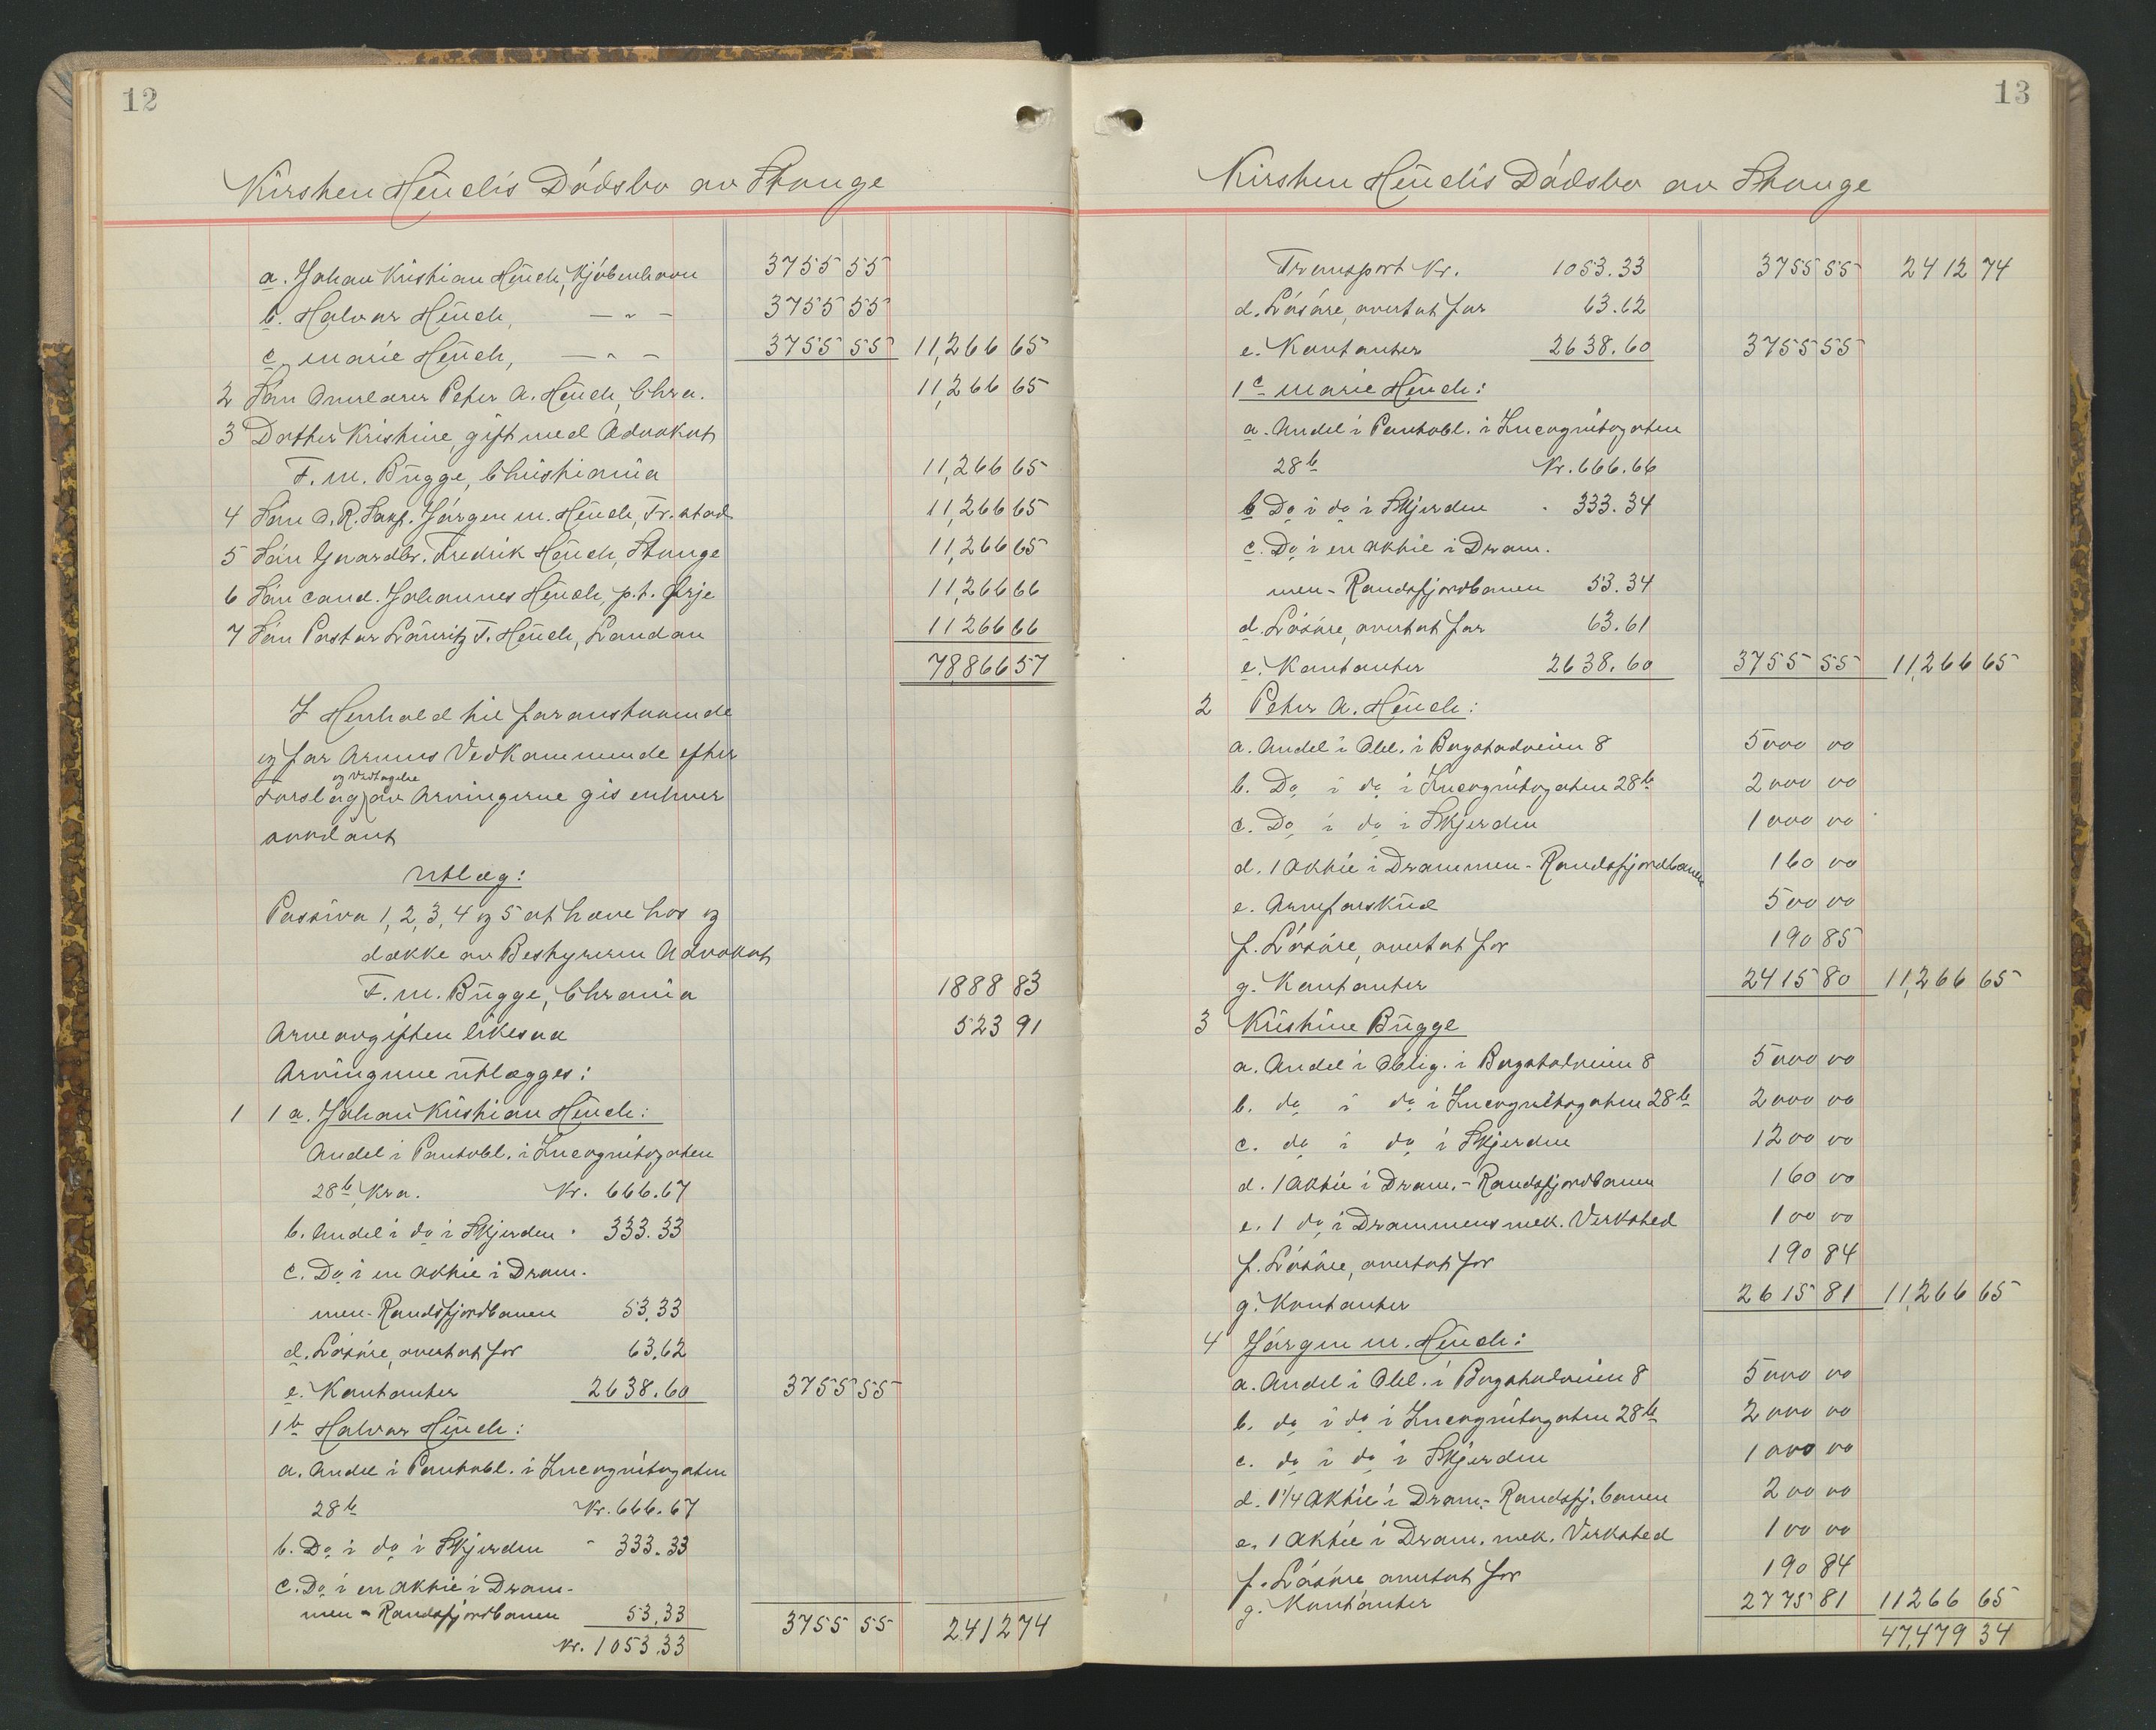 12
Kirsten Heuch's Dödsbo av Stange
a. Johan Kristian Heuch, Kjöbenhavn 3755 55
b. Halvor Heuch, — " — 3755 55
c. Marie Heuch, — " — 3755 55 11,266 65
2 Sön Overlærer Peter A. Heuch, Chra. 11,266 65
3 Datter Kristine, gift med Advokat
F. M. Bugge, Christiania 11,266 65
4 Sön O. R. Sakf. Jörgen M. Heuch, Fr.stad 11,266 65
5 Sön Gaardbr. Fredrik Heuch, Stange 11,266 65
6 Sön cand. Johannes Heuch, p.t. Ørje 11,266 66
7 Sön Pastor Lauritz F. Heuch, London 11266 66
78,866 57
I Henhold til foranstaaende
og for Arvens Vedkommende efter
og Vedtagelse
Forslag av Arvingerne gis enhver
saadant
Utlæg:
Passiva 1, 2, 3, 4 og 5 at have hos og
dække av Bestyreren Advokat
F. M. Bugge, Chrania 1888 83
Arveavgiften likesaa 523 91
Arvingerne utlægges:
1 1 a. Johan Kristian Heuch:
Andel i Pantobl. i Incognitogaten
28b Kra. Kr. 666.67
b. Andel i do i Skjerden " 333.33
c. Do i en Aktie i Dram-
men-Randsfjordbanen 53.33
d. Lösöre, overtat for 63.62
e. Kontanter 2638.60 3755 55
1b Halvor Heuch:
a. Andel i Pantobl. i Incognitogaten
28b Kr. 666.67
b. Do i do i Skjerden " 333.33
c. Do i en Aktie i Dram-
men - Randsfjordbanen 53.33
Kr. 1053.33 3755 55 2412 74
13
Kirsten Heuch's Dödsbo av Stange
Transport Kr. 1053.33 3755 55 2412 74
d. Lösöre, overtat for 63.62
e. Kontanter 2638.60 3755 55
1c Marie Heuch:
a. Andel i Pantobl. i Incognitogaten
28b Kr. 666.66
b Do i do i Skjerden " 333.34
c. Do i en Aktie i Dram.
men-Randsfjordbanen 53.34
d. Lösöre, overtat for 63.61
e. Kontanter 2638.60 3755 55 11,266 65
2 Peter A. Heuch:
a. Andel i Obl. i Bogstadveien 8 5000 00
b. Do i do i Incognitogaten 28b 2000 00
c. Do i do i Skjerden 1000 00
d. 1 Aktie i Drammen-Randsfjordbanen 160 00
e. Arveforskud 500 00
f. Lösöre, overtat for 190 85
g. Kontanter 2415 80 11,266 65
3 Kristine Bugge
a. Andel i Oblig. i Bogstadveien 8 5000 00
b. do i do i Incognitogaten 28b 2000 00
c. do i do i Skjerden 1200 00
d. 1 Aktie i Dram.-Randsfjordbanen 160 00
e. 1 do i Drammens mek. Verksted 100 00
f. Lösöre, overtat for 190 84
g. Kontanter 2615 81 11,266 65
4 Jörgen M. Heuch:
a. Andel i Obl. i Bogstadveien 8 5000 00
b. do i do i Incognitogaten 28b 2000 00
c. do i do i Skjerden 1000 00
d. 1 1/4 Aktie i Dram.-Randsfj.banen 200 00
e. 1 Aktie i Dram. mek. Verksted 100 00
f. Lösöre, overtat for 190 84
g. Kontanter 2775 81 11266 65
47,479 34